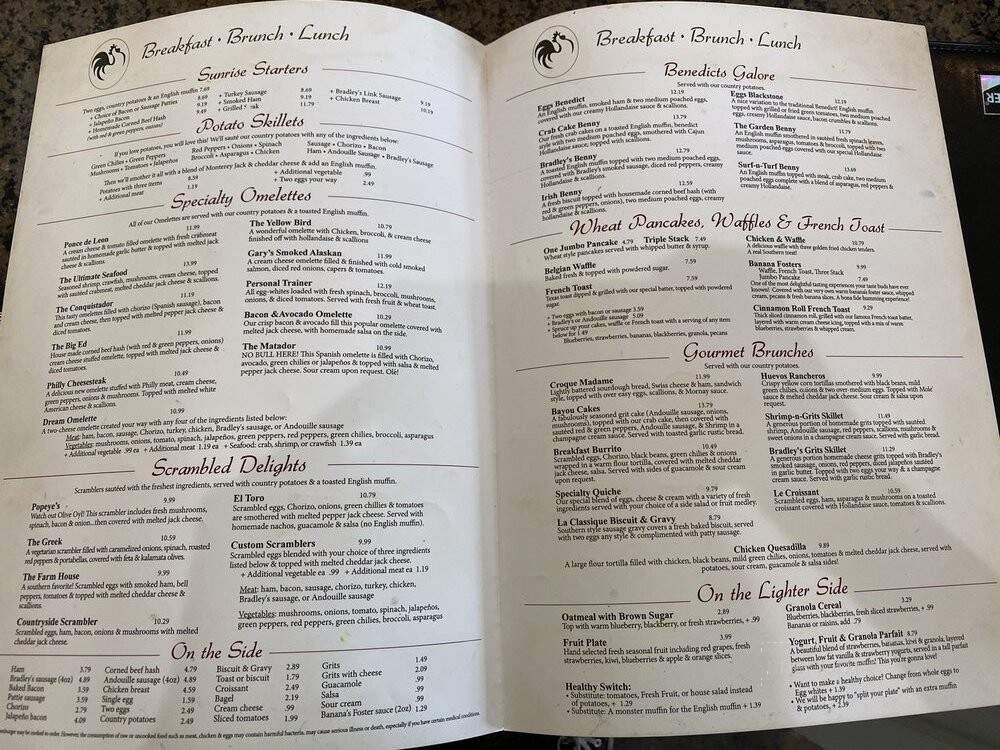 Breakfast · Brunch · Lunch
Sunrise Starters
Two eggs, country potatoes & an English muffin 7.69
+ Choice of Bacon or Sausage Patties 8.69
+ Jalapeño Bacon 9.19
+ Homemade Corned Beef Hash 9.49
(with red & green peppers, onions)
+ Turkey Sausage 8.69
+ Smoked Ham 9.19
+ Grilled 11.79
+ Bradley's Link Sausage 9.19
+ Chicken Breast 10.19
Potato Skillets
If you love potatoes, you will love this! We'll sauté our country potatoes with any of the ingredients below:
Green Chilies • Green Peppers
Mushrooms • Tomatoes • Jalapeños
Red Peppers • Onions • Spinach
Broccoli • Asparagus • Chicken
Sausage • Chorizo • Bacon
Ham • Andouille Sausage • Bradley's Sausage
Then we'll smother it all with a blend of Monterey Jack & cheddar cheese & add an English muffin.
Potatoes with three items 8.59
+ Additional meat 1.19
+ Additional vegetable .99
+ Two eggs your way 2.49
Specialty Omelettes
All of our Omelettes are served with our country potatoes & a toasted English muffin.
Ponce de Leon 11.99
A cream cheese & tomato filled omelette with fresh crabmeat
sautéed in homemade garlic butter & topped with melted jack
cheese & scallions.
The Ultimate Seafood 13.99
Seasoned shrimp, crawfish, mushrooms, cream cheese, topped
with sautéed crabmeat, melted cheddar jack cheese & scallions.
The Conquistador 11.19
This tasty omelette filled with chorizo (Spanish sausage), bacon
and cream cheese, then topped with melted pepper jack cheese &
diced tomatoes.
The Big Ed 11.99
House made corned beef hash (with red & green peppers, onions)
cream cheese stuffed omelette, topped with melted jack cheese &
diced tomatoes.
Philly Cheesesteak 10.49
A delicious new omelette stuffed with Philly meat, cream cheese,
green peppers, onions & mushrooms. Topped with melted white
American cheese & scallions.
The Yellow Bird 10.79
A wonderful omelette with Chicken, broccoli, & cream cheese
finished off with hollandaise & scallions
Gary's Smoked Alaskan 11.99
A cream cheese omelette filled & finished with cold smoked
salmon, diced red onions, capers & tomatoes.
Personal Trainer 12.19
All egg-whites loaded with fresh spinach, broccoli, mushrooms,
onions, & diced tomatoes. Served with fresh fruit & wheat toast.
Bacon &Avocado Omelette 10.29
Our crisp bacon & avocado fill this popular omelette covered with
melted jack cheese, with homemade salsa on the side.
The Matador 10.99
NO BULL HERE! This Spanish omelette is filled with Chorizo,
avocado, green chilies or jalapeños & topped with salsa & melted
pepper jack cheese. Sour cream upon request. Olé!
Dream Omelette 10.99
A two cheese omelette created your way with any four of the ingredients listed below:
Meat: ham, bacon, sausage, Chorizo, turkey, chicken, Bradley's sausage, or Andouille sausage
Vegetables: mushrooms, onions, tomato, spinach, jalapeños, green peppers, red peppers, green chilies, broccoli, asparagus
+ Additional vegetable .99 ea + Additional meat 1.19 ea + Seafood: crab, shrimp, or crawfish 1.39 ea
Scrambled Delights
Scramblers sautéed with the freshest ingredients, served with country potatoes & a toasted English muffin.
Popeye's 9.99
Watch out Olive Oyl! This scrambler includes fresh mushrooms,
spinach, bacon & onion...then covered with melted jack cheese.
The Greek 10.59
A vegetarian scrambler filled with caramelized onions, spinach, roasted
red peppers & portabellas, covered with feta & kalamata olives.
The Farm House 9.99
A southern favorite! Scrambled eggs with smoked ham, bell
peppers, tomatoes & topped with melted cheddar cheese &
scallions.
Countryside Scrambler 10.29
Scrambled eggs, ham, bacon, onions & mushrooms with melted
cheddar jack cheese.
El Toro 10.79
Scrambled eggs, Chorizo, onions, green chillies & tomatoes
are smothered with melted pepper jack cheese. Served with
homemade nachos, guacamole & salsa (no English muffin).
Custom Scramblers 9.99
Scrambled eggs blended with your choice of three ingredients
listed below & topped with melted cheddar jack cheese.
+ Additional vegetable ea .99 + Additional meat ea 1.19
Meat: ham, bacon, sausage, chorizo, turkey, chicken,
Bradley's sausage, or Andouille sausage
Vegetables: mushrooms, onions, tomato, spinach, jalapeños,
green peppers, red peppers, green chilies, broccoli, asparagus
On the Side
Ham 3.79
Bradley's sausage (4oz) 4.89
Baked Bacon 3.59
Pattie sausage 3.59
Chorizo 2.79
Jalapeño bacon 4.09
Corned beef hash 4.79
Andouille sausage (4oz) 4.89
Chicken breast 4.59
Single egg 1.59
Two eggs 2.49
Country potatoes 2.49
Biscuit & Gravy 2.89
Toast or biscuit 1.79
Croissant 2.49
Bagel 2.19
Cream cheese .99
Sliced tomatoes 1.99
Grits 1.49
Grits with cheese 2.09
Guacamole .99
Salsa .99
Sour cream .99
Banana's Foster sauce (2oz) 1.29
may be cooked to order. However, the consumption of raw or uncooked food such as meat, chicken & eggs may contain harmful bacteria, may cause serious illness or death, especially if you have certain medical conditions.
Breakfast · Brunch · Lunch
Benedicts Galore
Served with our country potatoes.
Eggs Benedict 12.19
An English muffin, smoked ham & two medium poached eggs,
covered with our creamy Hollandaise sauce & scallions.
Crab Cake Benny 13.79
Our fresh crab cakes on a toasted English muffin, benedict
style with two medium poached eggs, smothered with Cajun
Hollandaise sauce; topped with scallions.
Bradley's Benny 11.79
A toasted English muffin topped with two medium poached eggs,
covered with Bradley's smoked sausage, diced peppers, creamy
Hollandaise & scallions.
Irish Benny 12.59
A fresh biscuit topped with housemade corned beef hash (with
red & green peppers, onions), two medium poached eggs, creamy
hollandaise & scallions.
Eggs Blackstone 12.19
A nice variation to the traditional Benedict! English muffin
topped with grilled or fried green tomatoes, two medium poached
eggs, creamy Hollandaise sauce, bacon crumbles & scallions.
The Garden Benny 11.79
An English muffin smothered in sautéed fresh spinach leaves,
mushrooms, asparagus, tomatoes & broccoli, topped with two
medium poached eggs covered with our special Hollandaise
sauce.
Surf-n-Turf Benny 13.69
An English muffin topped with steak, crab cake, two medium
poached eggs complete with a blend of asparagus, red peppers &
creamy Hollandaise.
Wheat Pancakes, Waffles & French Toast
One Jumbo Pancake 4.79 Triple Stack 7.49
Wheat style pancakes served with whipped butter & syrup.
Belgian Waffle 7.59
Baked fresh & topped with powdered sugar.
French Toast 7.59
Texas toast dipped & grilled with our special batter, topped with powdered
sugar.
+ Two eggs with bacon or sausage 3.59
+ Bradley's or Andouille sausage 5.09
+ Spruce up your cakes, waffle or French toast with a serving of any item
below for 1.49
Blueberries, strawberries, bananas, blackberries, granola, pecans
Chicken & Waffle 10.79
A delicious waffle with three golden fried chicken tenders.
A real Southern treat!
Banana Fosters
Waffle, French Toast, Three Stack 9.99
Jumbo Pancake 7.49
One of the most delightful tasting experiences your taste buds have ever
known! Covered with our very own warm bananas foster sauce, whipped
cream, pecans & fresh banana slices. A bona fide humming experience!
Cinnamon Roll French Toast 9.29
Thick sliced cinnamon roll, grilled with our famous French toast batter,
layered with warm cream cheese icing, topped with a mix of warm
blueberries, strawberries & whipped cream.
Gourmet Brunches
Served with our country potatoes.
Croque Madame 11.99
Lightly battered sourdough bread, Swiss cheese & ham, sandwich
style, topped with over easy eggs, scallions, & Mornay sauce.
Bayou Cakes 13.79
A fabulously seasoned grit cake (Andouille sausage, onions,
mushrooms), topped with our crab cake, then covered with
sautéed red & green peppers, Andouille sausage, & Shrimp in a
champagne cream sauce. Served with toasted garlic rustic bread.
Breakfast Burrito 10.49
Scrambled eggs, Chorizo, black beans, green chilies & onions
wrapped in a warm flour tortilla, covered with melted cheddar
jack cheese, salsa. Served with sides of guacamole & sour cream
upon request.
Specialty Quiche 9.79
Our special blend of eggs, cheese & cream with a variety of fresh
ingredients served with your choice of a side salad or fruit medley.
La Classique Biscuit & Gravy 8.79
Southern style sausage gravy covers a fresh baked biscuit, served
with two eggs any style & complimented with patty sausage.
Huevos Rancheros 9.99
Crispy yellow corn tortillas smothered with black beans, mild
green chilies, onions & two over-medium eggs. Topped with Mole'
sauce & melted cheddar jack cheese. Sour cream & eggs, salsa upon
request.
Shrimp-n-Grits Skillet 11.49
A generous portion of homemade grits topped with sautéed
shrimp, Andouille sausage, red peppers, scallions, mushrooms &
sweet onions in a champagne cream sauce. Served with garlic bread.
Bradley's Grits Skillet 11.29
A generous portion homemade cheese grits topped with Bradley's
smoked sausage, onions, red peppers, diced jalapeños sautéed
in garlic butter. Topped with two eggs your way & a champagne
cream sauce. Served with garlic rustic bread.
Le Croissant 10.59
Scrambled eggs, ham, asparagus & mushrooms on a toasted
croissant covered with Hollandaise sauce, tomatoes & scallions.
Chicken Quesadilla 9.89
A large flour tortilla filled with chicken, black beans, mild green chilies, onions, tomatoes & melted cheddar jack cheese, served with
potatoes, sour cream, guacamole & salsa sides!
On the Lighter Side
Oatmeal with Brown Sugar 2.89
Top with warm blueberry, blackberry, or fresh strawberries, + .99
Fruit Plate 3.99
Hand selected fresh seasonal fruit including red grapes, fresh
strawberries, kiwi, blueberries & apple & orange slices.
Healthy Switch:
• Substitute: tomatoes, Fresh Fruit, or house salad instead
of potatoes, + 1.29
• Substitute: A monster muffin for the English muffin + 1.39
Granola Cereal 3.29
Blueberries, blackberries, fresh sliced strawberries, + .99
Bananas or raisins, add .79
Yogurt, Fruit & Granola Parfait 8.79
A beautiful blend of strawberries, bananas, kiwi & granola, layered
between low fat vanilla & strawberry yogurts, served in a tall parfait
glass with your favorite muffin! This you're gonna love!
• Want to make a healthy choice? Change from whole eggs to
Egg whites + 1.39
• We will be happy to "split your plate" with an extra muffin
& potatoes, + 2.39